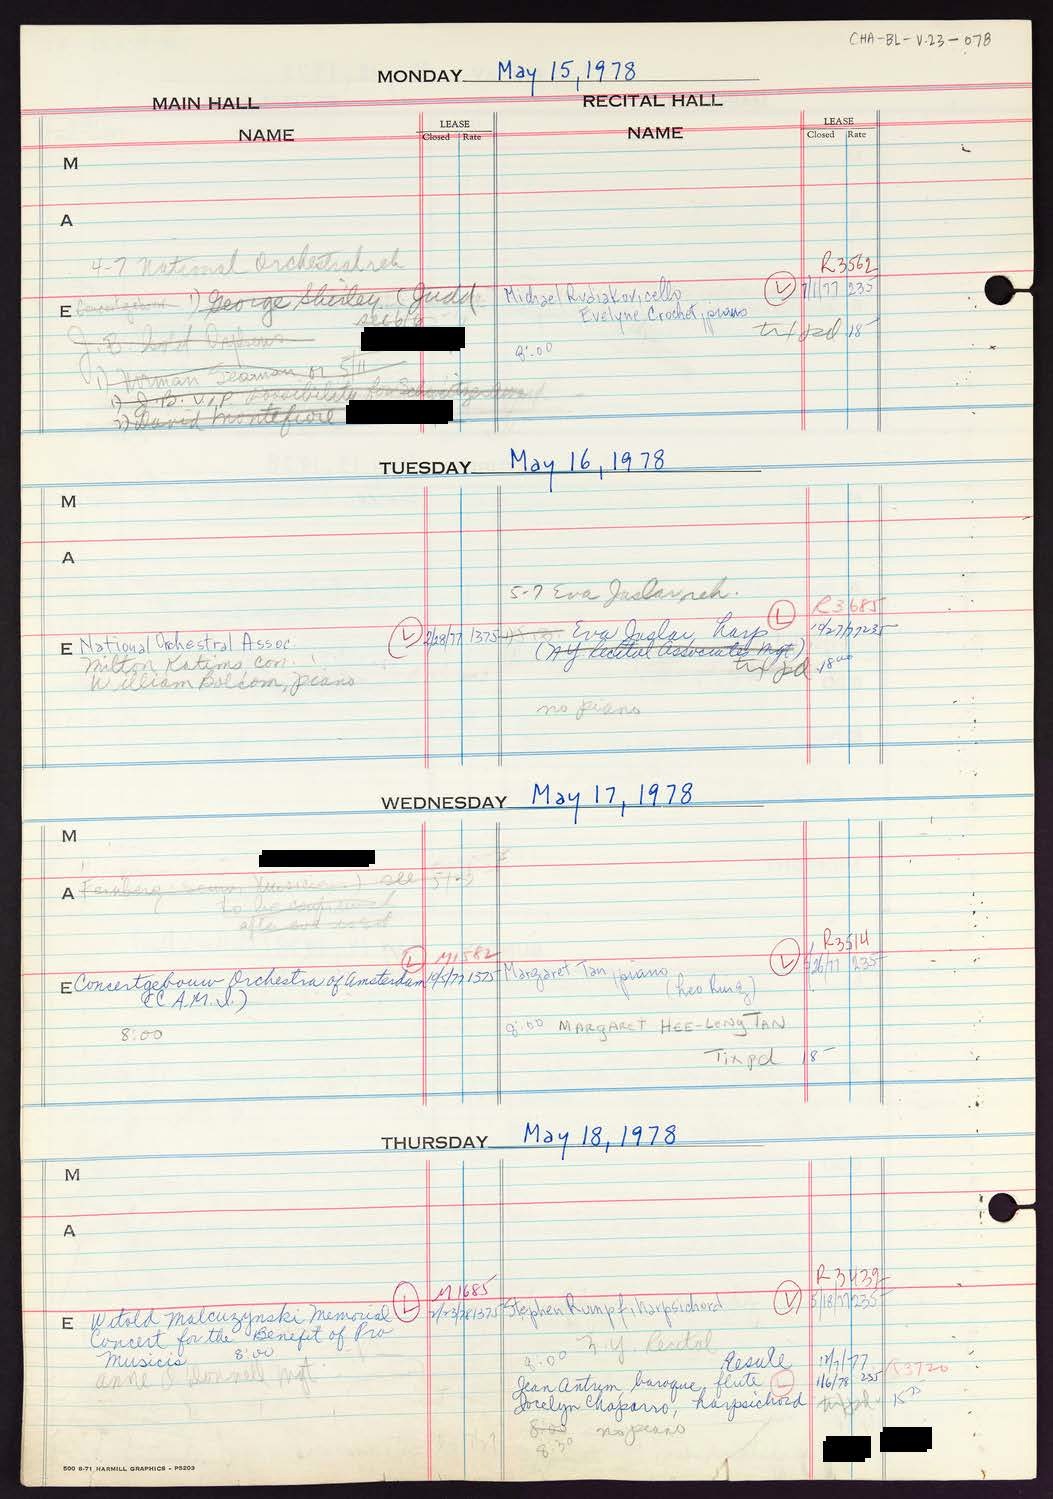 CHA-BL-V.23-078
MONDAY May 15, 1978
MAIN HALL RECITAL HALL
NAME LEASE Closed Rate NAME LEASE Closed Rate
M
A
4-7 National Orchestral reh
R3562
E 1) George Shirley (Judd Michael Rudiakov, cello L 7/1/77 235
Evelyne Crochet, piano
see 6/6
tix pd 18-
J.B.
8:00
1) Norman Seaman or 5/11
1) J.B. V.I.P. possibility for
2) David Montefiore
TUESDAY May 16, 1978
M
A
5-7 Eva Jaslar reh.
L R3685
E National Orchestral Assoc. L 2/28/77 1375 Eva Jaslar, harp 10/27/77 235
Milton Katims con. (NY Recital Associates Mgt)
William Bolcom, piano tix pd 18.00
no piano
WEDNESDAY May 17, 1978
M
A see 5/23
to be confirmed
after
L M1582 L R3514
E Concertgebouw Orchestra of Amsterdam 10/5/77 1375 Margaret Tan, piano 5/26/77 235
(C.A.M.I.)
8:00 8:00 MARGARET HEE-LENG TAN
Tix pd 18-
THURSDAY May 18, 1978
M
A
L M1685 R3439
E Witold Malcuzynski Memorial 2/23/78 1375 Stephen Rumpf, harpsichord L 5/18/77 235
Concert for the Benefit of Pro
Musicis 8:00
8:00 N.Y. Recital
Anne O'Donnell Mgt.
Resale 12/7/77
Jean Antrim, baroque flute L 1/6/78 235 R3720
Jocelyn Chaparro, harpsichord tix pd
8:00 no piano
8:30
500 8-71 HARMILL GRAPHICS - P5203